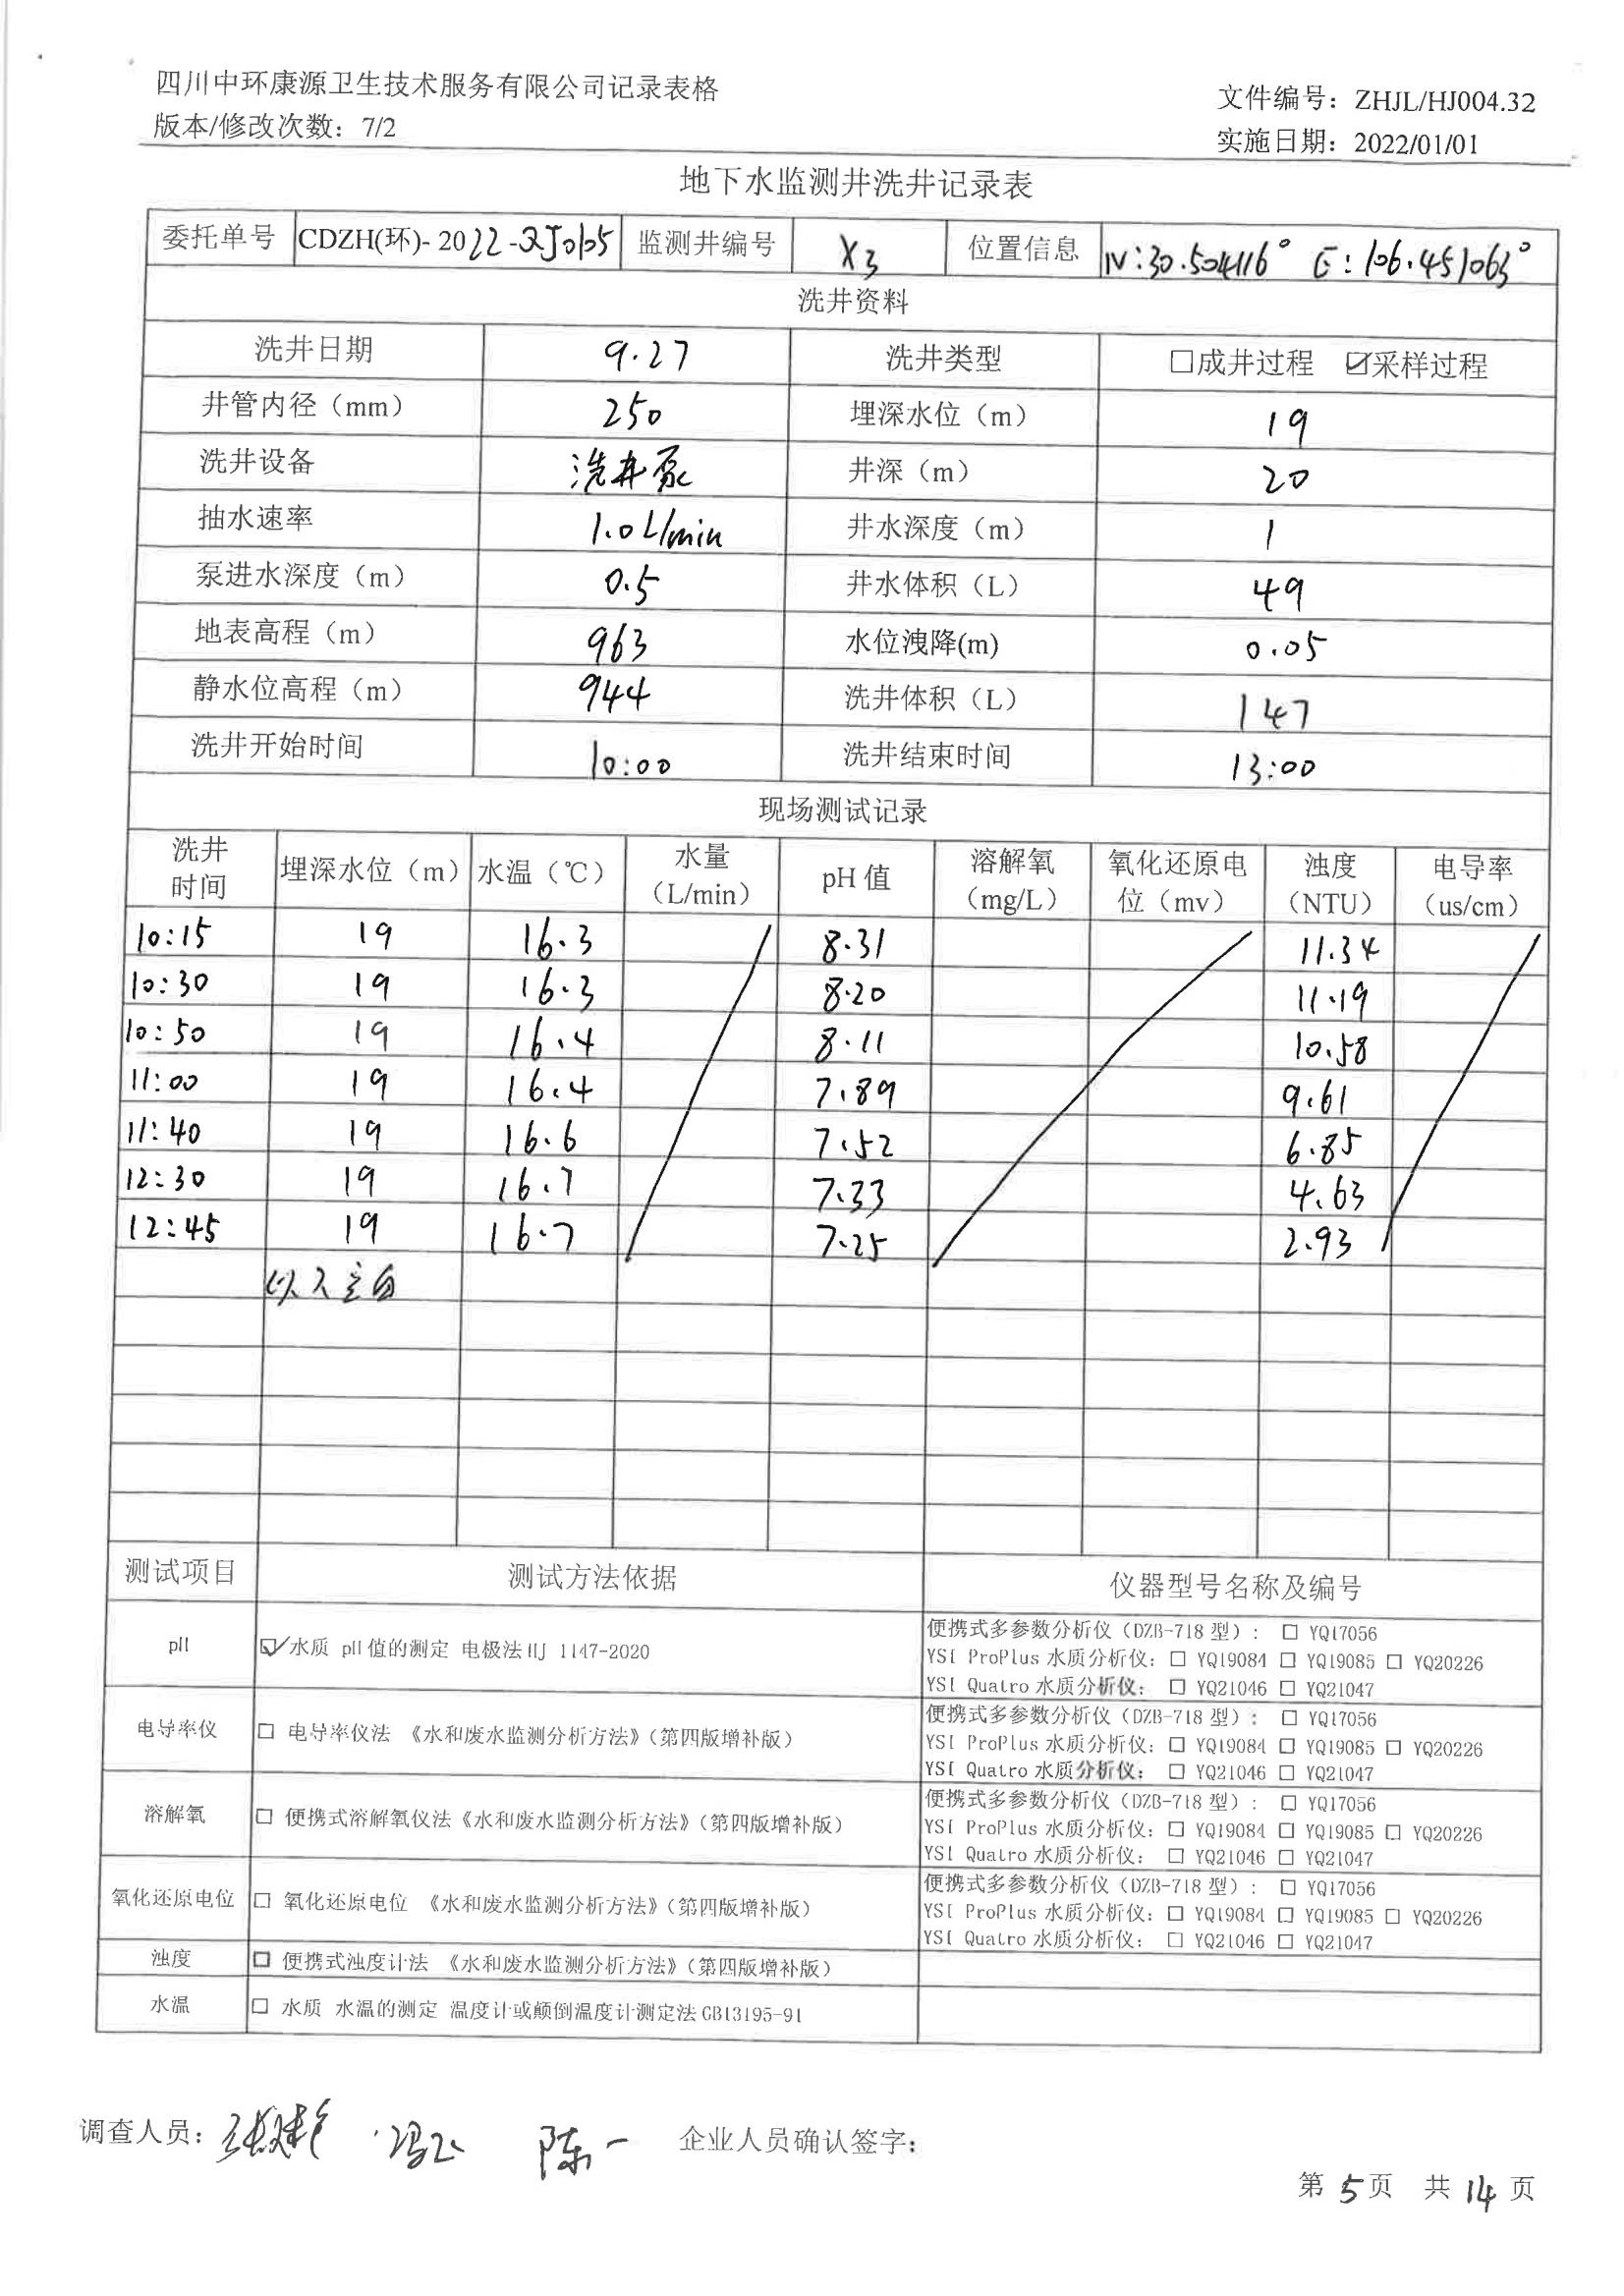 四川中环康源卫生技术服务有限公司记录表格
版本/修改次数：7/2
文件编号：ZHJL/HJ004.32
实施日期：2022/01/01
地下水监测井洗井记录表
委托单号 CDZH(环)- 2022- 监测井编号 X3 位置信息 N:30.504116° E:106.451063°
洗井资料
洗井日期 9.27 洗井类型 □成井过程 ☑采样过程
井管内径（mm） 250 埋深水位（m） 19
洗井设备 洗井泵 井深（m） 20
抽水速率 1.0L/min 井水深度（m） 1
泵进水深度（m） 0.5 井水体积（L） 49
地表高程（m） 963 水位洩降(m) 0.05
静水位高程（m） 944 洗井体积（L） 147
洗井开始时间 10:00 洗井结束时间 13:00
现场测试记录
洗井时间 埋深水位（m） 水温（℃） 水量（L/min） pH 值 溶解氧（mg/L） 氧化还原电位（mv） 浊度（NTU） 电导率（us/cm）
10:15 19 16.3 8.31 11.34
10:30 19 16.3 8.20 11.19
10:50 19 16.4 8.11 10.58
11:00 19 16.4 7.89 9.61
11:40 19 16.6 7.52 6.85
12:30 19 16.7 7.33 4.63
12:45 19 16.7 7.25 2.93
以下空白
测试项目 测试方法依据 仪器型号名称及编号
pH ☑水质 pH 值的测定 电极法 HJ 1147-2020
便携式多参数分析仪（DZB-718 型）： □ YQ17056
YSI ProPlus 水质分析仪：□ YQ19084 □ YQ19085 □ YQ20226
YSI Quatro 水质分析仪： □ YQ21046 □ YQ21047
电导率仪 □ 电导率仪法 《水和废水监测分析方法》（第四版增补版）
便携式多参数分析仪（DZB-718 型）： □ YQ17056
YSI ProPlus 水质分析仪：□ YQ19084 □ YQ19085 □ YQ20226
YSI Quatro 水质分析仪： □ YQ21046 □ YQ21047
溶解氧 □ 便携式溶解氧仪法《水和废水监测分析方法》（第四版增补版）
便携式多参数分析仪（DZB-718 型）： □ YQ17056
YSI ProPlus 水质分析仪：□ YQ19084 □ YQ19085 □ YQ20226
YSI Quatro 水质分析仪： □ YQ21046 □ YQ21047
氧化还原电位 □ 氧化还原电位 《水和废水监测分析方法》（第四版增补版）
便携式多参数分析仪（DZB-718 型）： □ YQ17056
YSI ProPlus 水质分析仪：□ YQ19084 □ YQ19085 □ YQ20226
YSI Quatro 水质分析仪： □ YQ21046 □ YQ21047
浊度 □ 便携式浊度计法 《水和废水监测分析方法》（第四版增补版）
水温 □ 水质 水温的测定 温度计或颠倒温度计测定法 GB13195-91
调查人员： 陈一 企业人员确认签字：
第 5 页 共 14 页